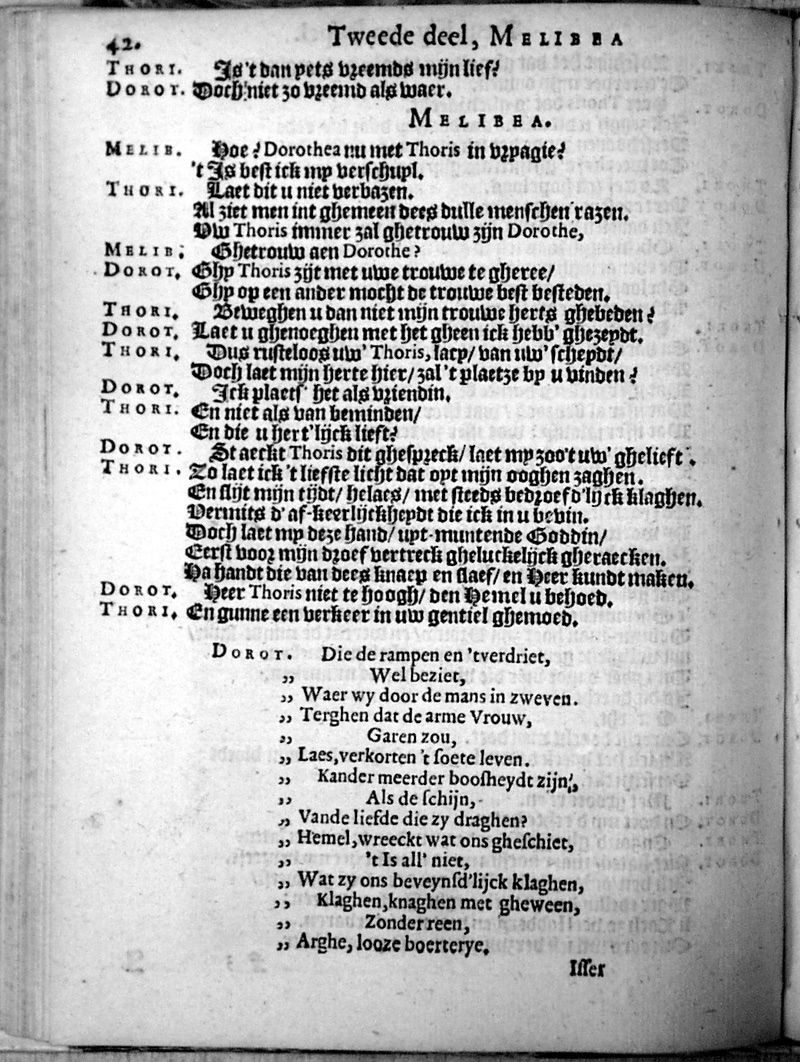 42. Tweede deel, MELIBEA
THORI. Js't dan yets vreemds mijn lief?
DOROT. Doch niet zo vreemd als waer.
MELIBEA.
MELIB. Hoe? Dorothea nu met Thoris in vrpagie?
't Js best ick my verschuyl.
THORI. Laet dit u niet verbazen.
Al ziet men int ghemeen dees dulle menschen razen.
Uw Thoris immer zal ghetrouw zijn Dorothe,
MELIB. Ghetrouw aen Dorothe?
DOROT. Ghy Thoris zijt met uwe trouwe te gheree/
Ghy op een ander mocht de trouwe best besteden.
THORI. Beweghen u dan niet mijn trouwe herts ghebeden?
DOROT. Laet u ghenoeghen met het gheen ick hebb' ghezeydt.
THORI. Dus rusteloos uw' Thoris, lacy/ van uw' scheydt/
Doch laet mijn herte hier/ zal 't plaetze by u vinden?
DOROT. Jck plaets' het als vriendin.
THORI. En niet als van beminden/
En die u hert'lijck lieft?
DOROT. Staeckt Thoris dit ghespreck/ laet my zoo't uw' ghelieft.
THORI. Zo laet ick 't liefste licht dat oyt mijn ooghen zaghen.
En slijt mijn tijdt/ helaes/ met steeds bedroefd'lijck klaghen,
Vermits d' af-keerlijckheydt die ick in u bevin.
Doch laet my deze hand/ uyt-muntende Goddin/
Eerst voor mijn droef vertreck gheluckelijck gheraecken.
Ha handt die van dees knaep en slaef/ en Heer kundt maken.
DOROT. Heer Thoris niet te hoogh/ den Hemel u behoed.
THORI. En gunne een verkeer in uw gentiel ghemoed.
DOROT. Die de rampen en 'tverdriet,
,, Wel beziet,
,, Waer wy door de mans in zweven.
,, Terghen dat de arme Vrouw,
,, Garen zou,
,, Laes, verkorten 't soete leven.
,, Kander meerder boosheydt zijn,
,, Als de schijn,
,, Vande liefde die zy draghen?
,, Hemel, wreeckt wat ons gheschiet,
,, 't Is all' niet,
,, Wat zy ons beveynsd'lijck klaghen,
,, Klaghen, knaghen met gheween,
,, Zonder reen,
,, Arghe, looze boerterye.
Isser